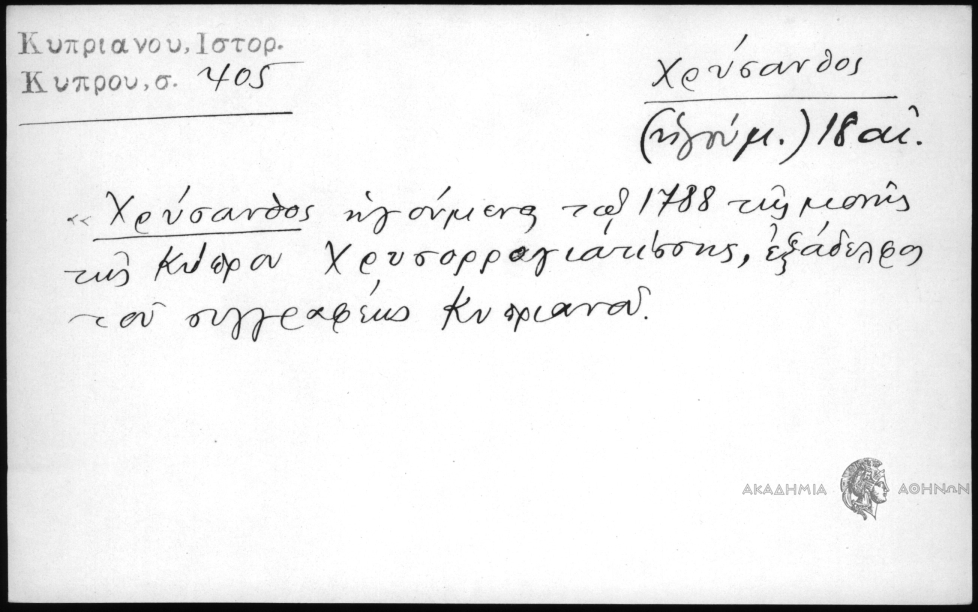 Κυπριανου, Ιστορ.
Κυπρου, σ. 405
Χρύσανθος
(ηγούμ.) 18 αι.
“ Χρύσανθος ηγούμενος τῷ 1788 τῆς μονῆς
τῆς Κύπρου Χρυσορραγιατίσσης, ἐξάδελφος
τοῦ συγγραφέως Κυπριανοῦ.
ΑΚΑΔΗΜΙΑ ΑΘΗΝΩΝ